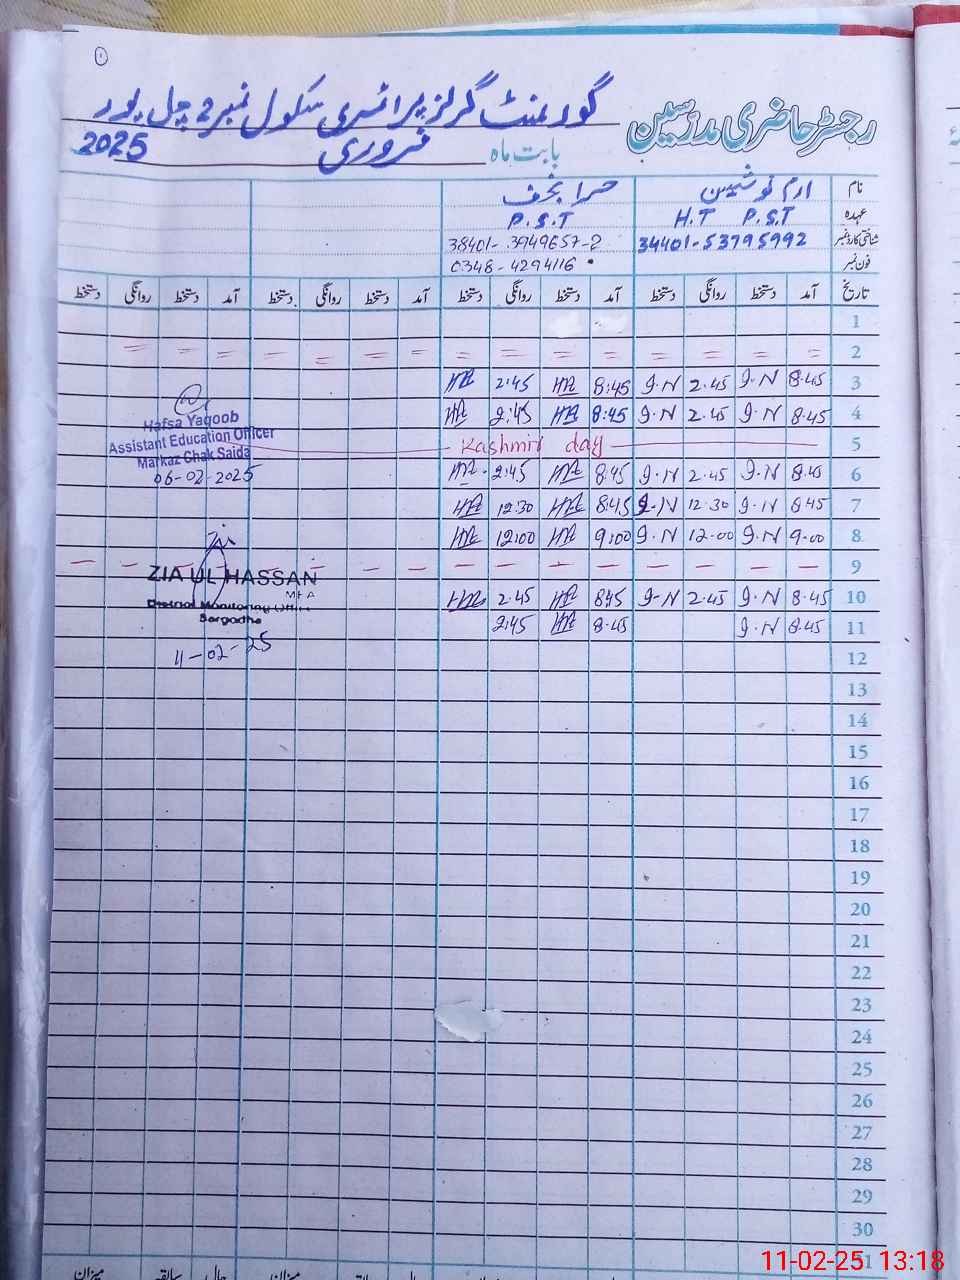 ۱
گورنمنٹ گرلز پرائمری سکول نمبر 2 چل پور
رجسٹر حاضری مدرسین
بابت ماہ فروری 2025
نام ارم نوشین حرا نجف
عہدہ H.T P.S.T P.S.T
شناختی کارڈ نمبر 34401-53795992 38401-3949657-2
فون نمبر 0348-4294116
تاریخ آمد دستخط روانگی دستخط آمد دستخط روانگی دستخط آمد دستخط روانگی دستخط آمد دستخط روانگی دستخط
1
2 = = = = = = = = = = = = = = =
3 8:45 I.N 2.45 I.N 8:45 HN 2:45 HN
4 8:45 I.N 2.45 I.N 8:45 HN 2:45 HN
5 Kashmir day
6 8:45 I.N 2.45 I.N 8:45 HN 2:45 HN
7 8:45 I.N 12.30 I.N 8:45 HN 12:30 HN
8 9.00 I.N 12.00 I.N 9:00 HN 12:00 HN
9 - - - - - - - - - - - - - - - -
10 8.45 I.N 2.45 I.N 8:45 HN 2.45 HN
11 8.45 I.N 8.45 HN 2:45
12
13
14
15
16
17
18
19
20
21
22
23
24
25
26
27
28
29
30
31
Hafsa Yaqoob
Assistant Education Officer
Markaz Chak Saida
06-02-2025
ZIA UL HASSAN
MEA
District Monitoring Officer
Sargodha
11-02-25
میزان سابقہ حال میزان
11-02-25 13:18